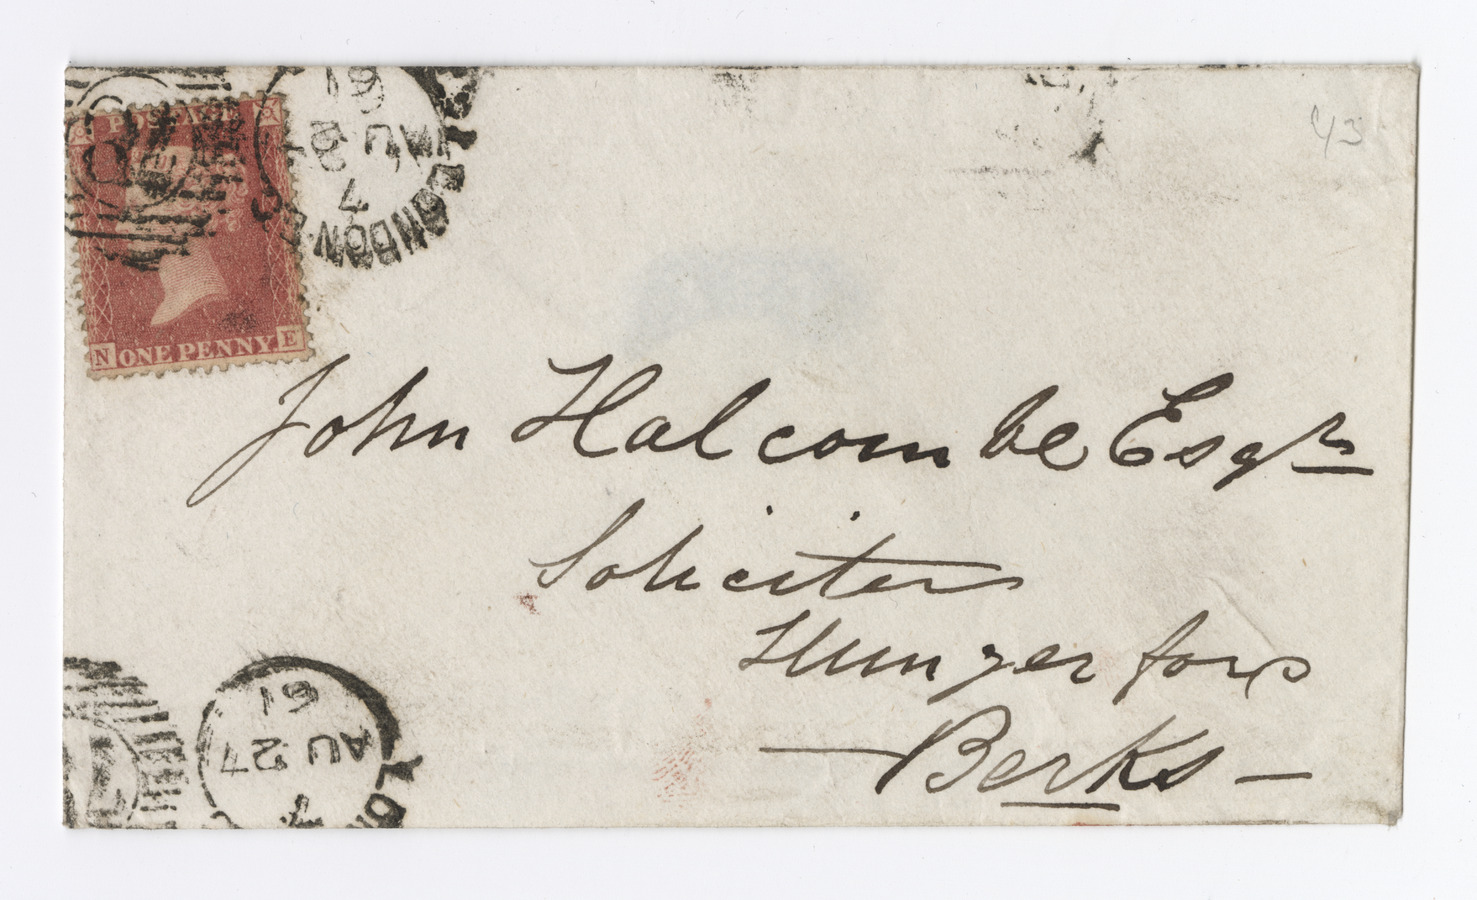 POSTAGE
N ONE PENNY E
LONDON
7
AU
61
43
John Halcombe Esqre
Solicitor
Hungerford
Berks
LON
AU 27
61